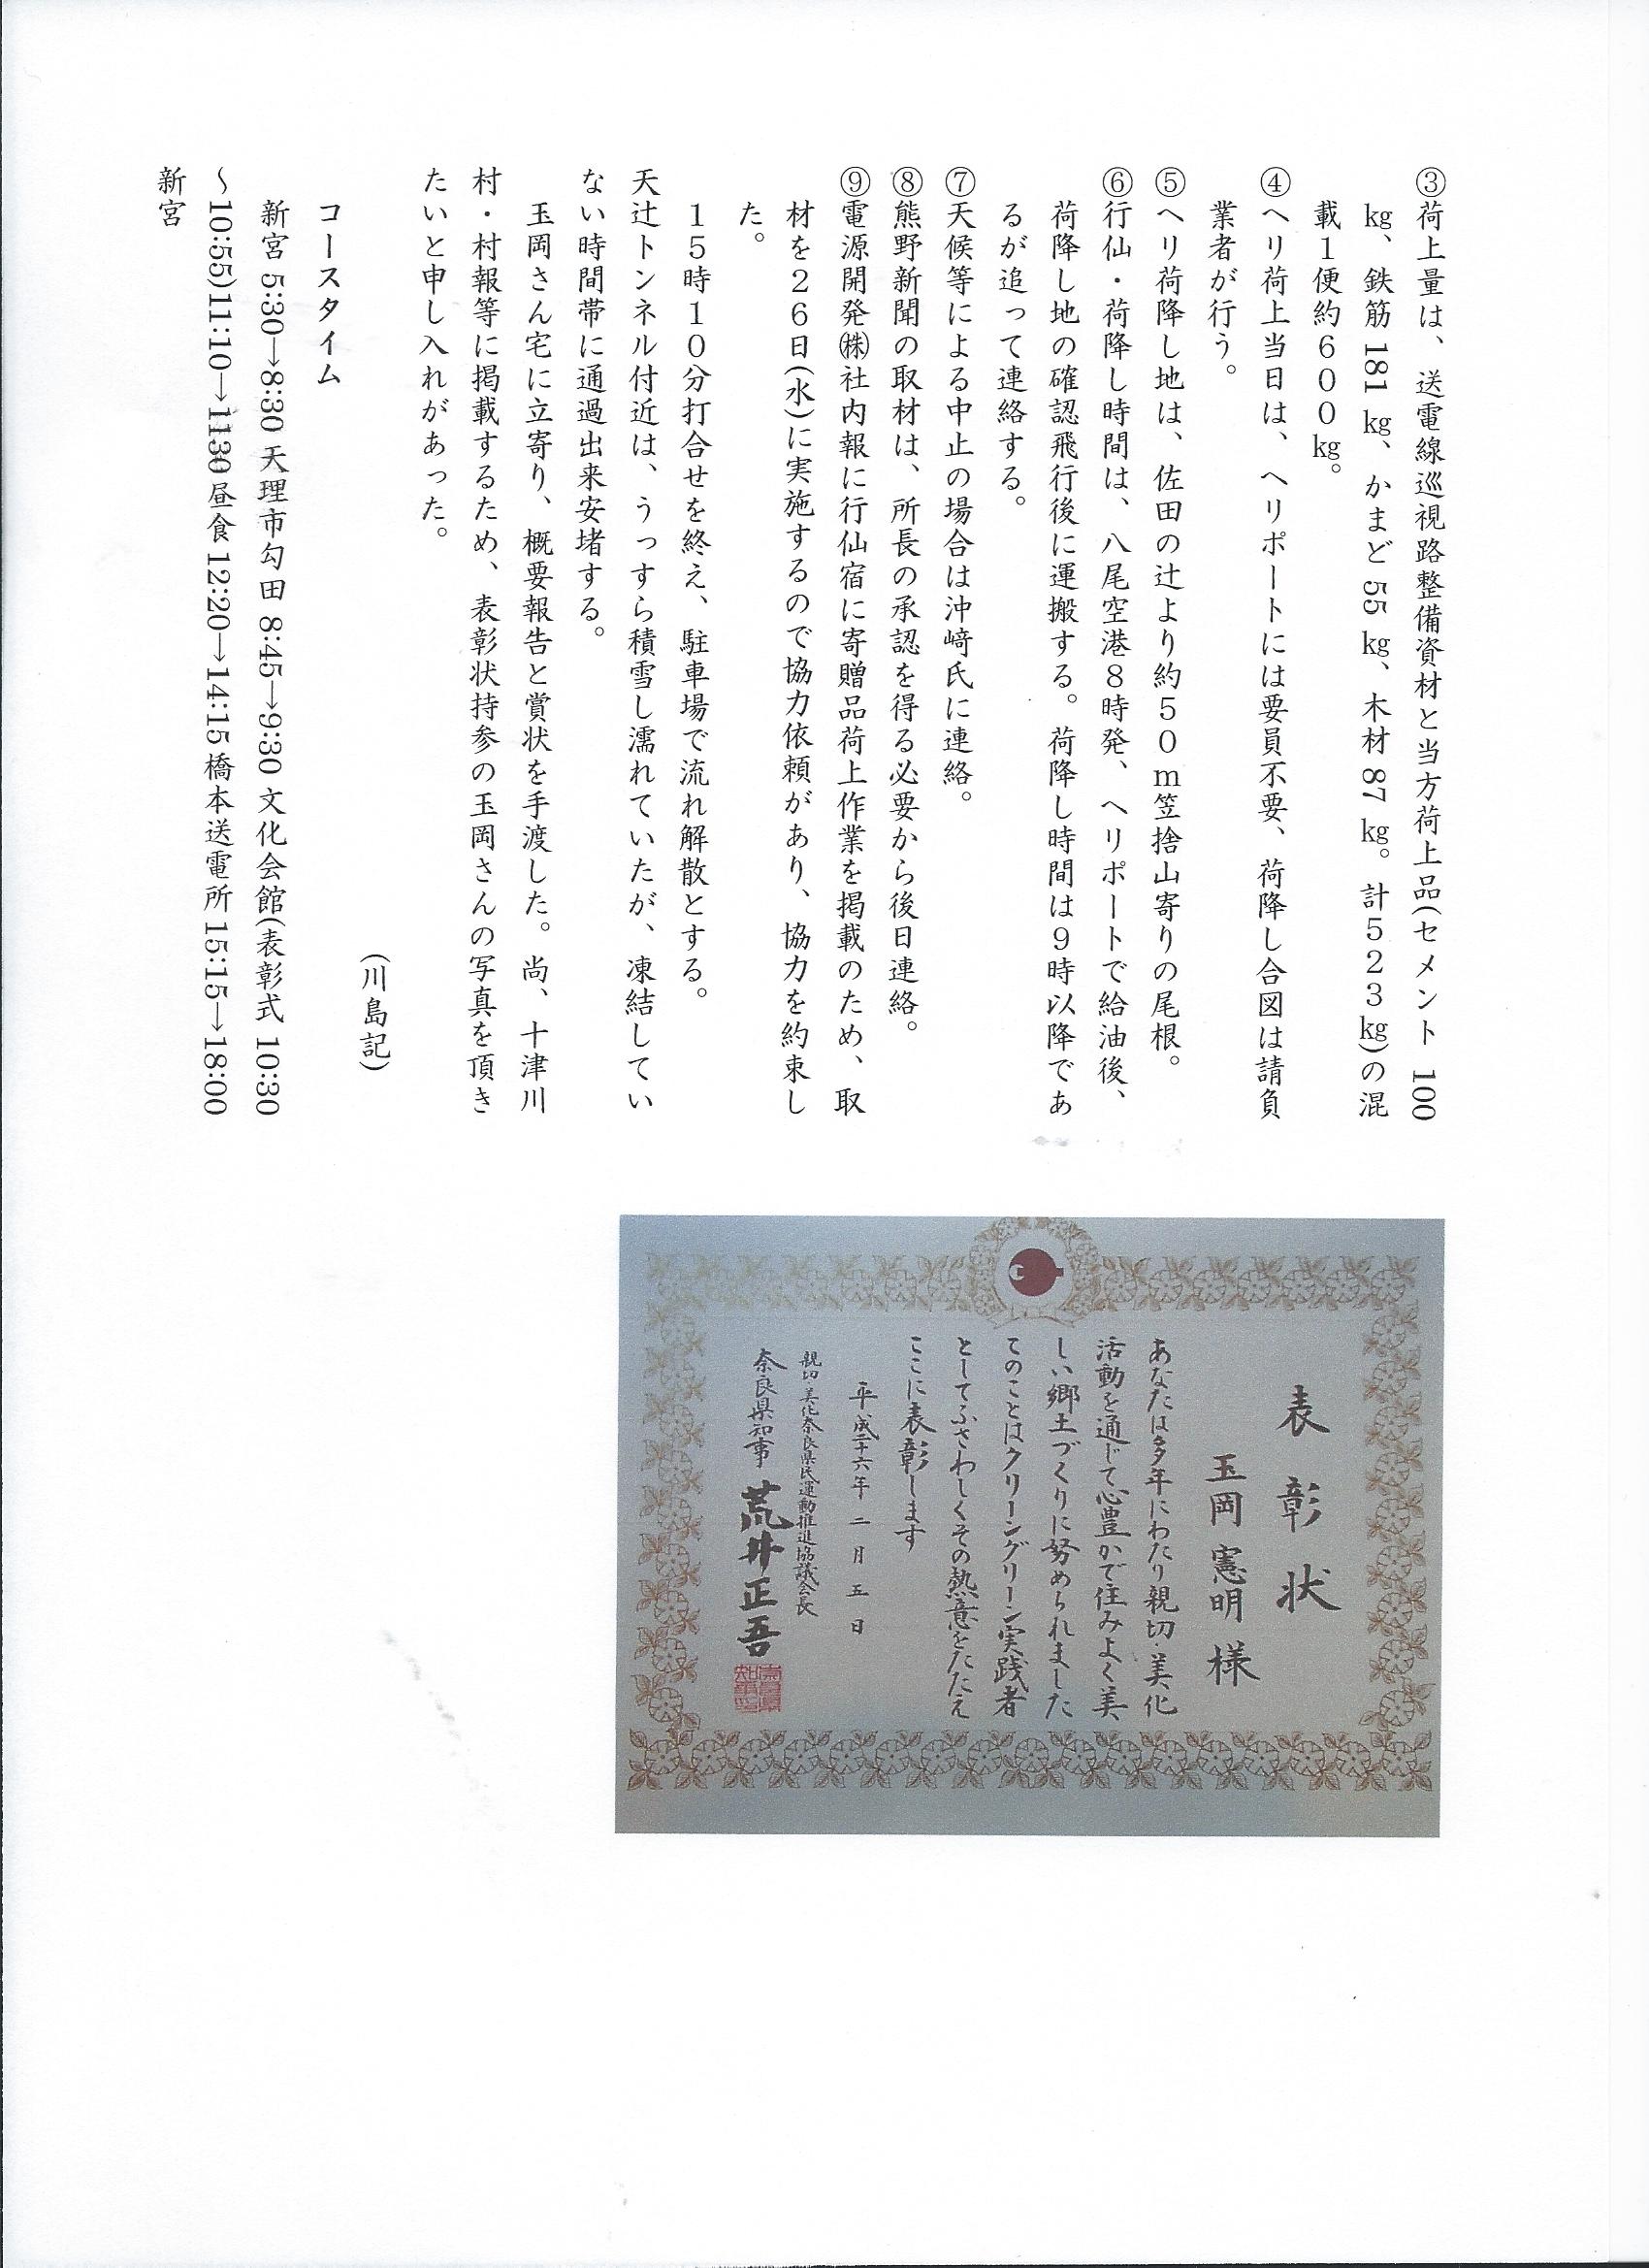 ③荷上量は、送電線巡視路整備資材と当方荷上品(セメント 100
kg、鉄筋 181 kg、かまど 55 kg、木材 87 kg。計５２３kg)の混
載１便約６００kg。
④ヘリ荷上当日は、ヘリポートには要員不要、荷降し合図は請負
業者が行う。
⑤ヘリ荷降し地は、佐田の辻より約５０ｍ笠捨山寄りの尾根。
⑥行仙・荷降し時間は、八尾空港８時発、ヘリポートで給油後、
荷降し地の確認飛行後に運搬する。荷降し時間は９時以降であ
るが追って連絡する。
⑦天候等による中止の場合は沖﨑氏に連絡。
⑧熊野新聞の取材は、所長の承認を得る必要から後日連絡。
⑨電源開発㈱社内報に行仙宿に寄贈品荷上作業を掲載のため、取
材を２６日(水)に実施するので協力依頼があり、協力を約束し
た。
１５時１０分打合せを終え、駐車場で流れ解散とする。
天辻トンネル付近は、うっすら積雪し濡れていたが、凍結してい
ない時間帯に通過出来安堵する。
玉岡さん宅に立寄り、概要報告と賞状を手渡した。尚、十津川
村・村報等に掲載するため、表彰状持参の玉岡さんの写真を頂き
たいと申し入れがあった。
(川島記)
コースタイム
新宮 5:30→8:30 天理市勾田 8:45→9:30 文化会館(表彰式 10:30
～10:55)11:10→1130 昼食 12:20→14:15 橋本送電所 15:15→18:00
新宮
表彰状
玉岡憲明様
あなたは多年にわたり親切・美化
活動を通じて心豊かで住みよく美
しい郷土づくりに努められました
このことはクリーングリーン実践者
としてふさわしくその熱意をたたえ
ここに表彰します
平成二十六年二月五日
親切・美化奈良県民運動推進協議会長
奈良県知事 荒井正吾